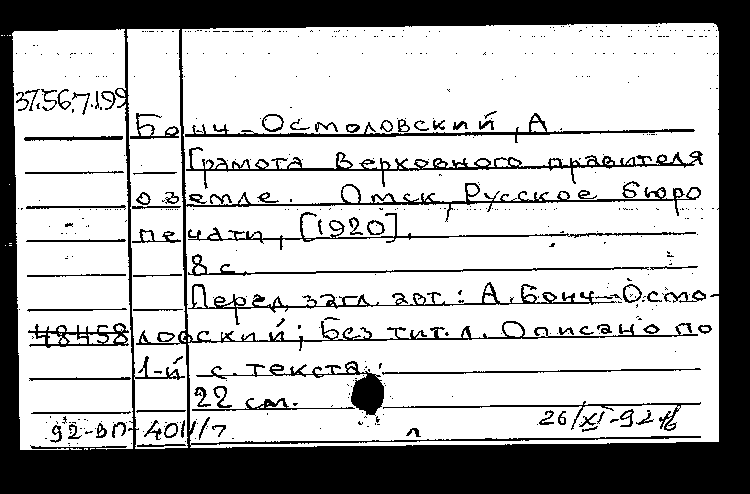 37.56.7.199
Бонч-Остоловский, А
Грамота Верховного правителя
о земле. Омск, Русское бюро
печати, [1920].
8 с.
Перед загл. авт.: А. Бонч-Осто-
48458 ловский; Без тит. л. Описано по
1-й с. текста.
22 см.
92-ВП-4011/7 л 26/XI-92